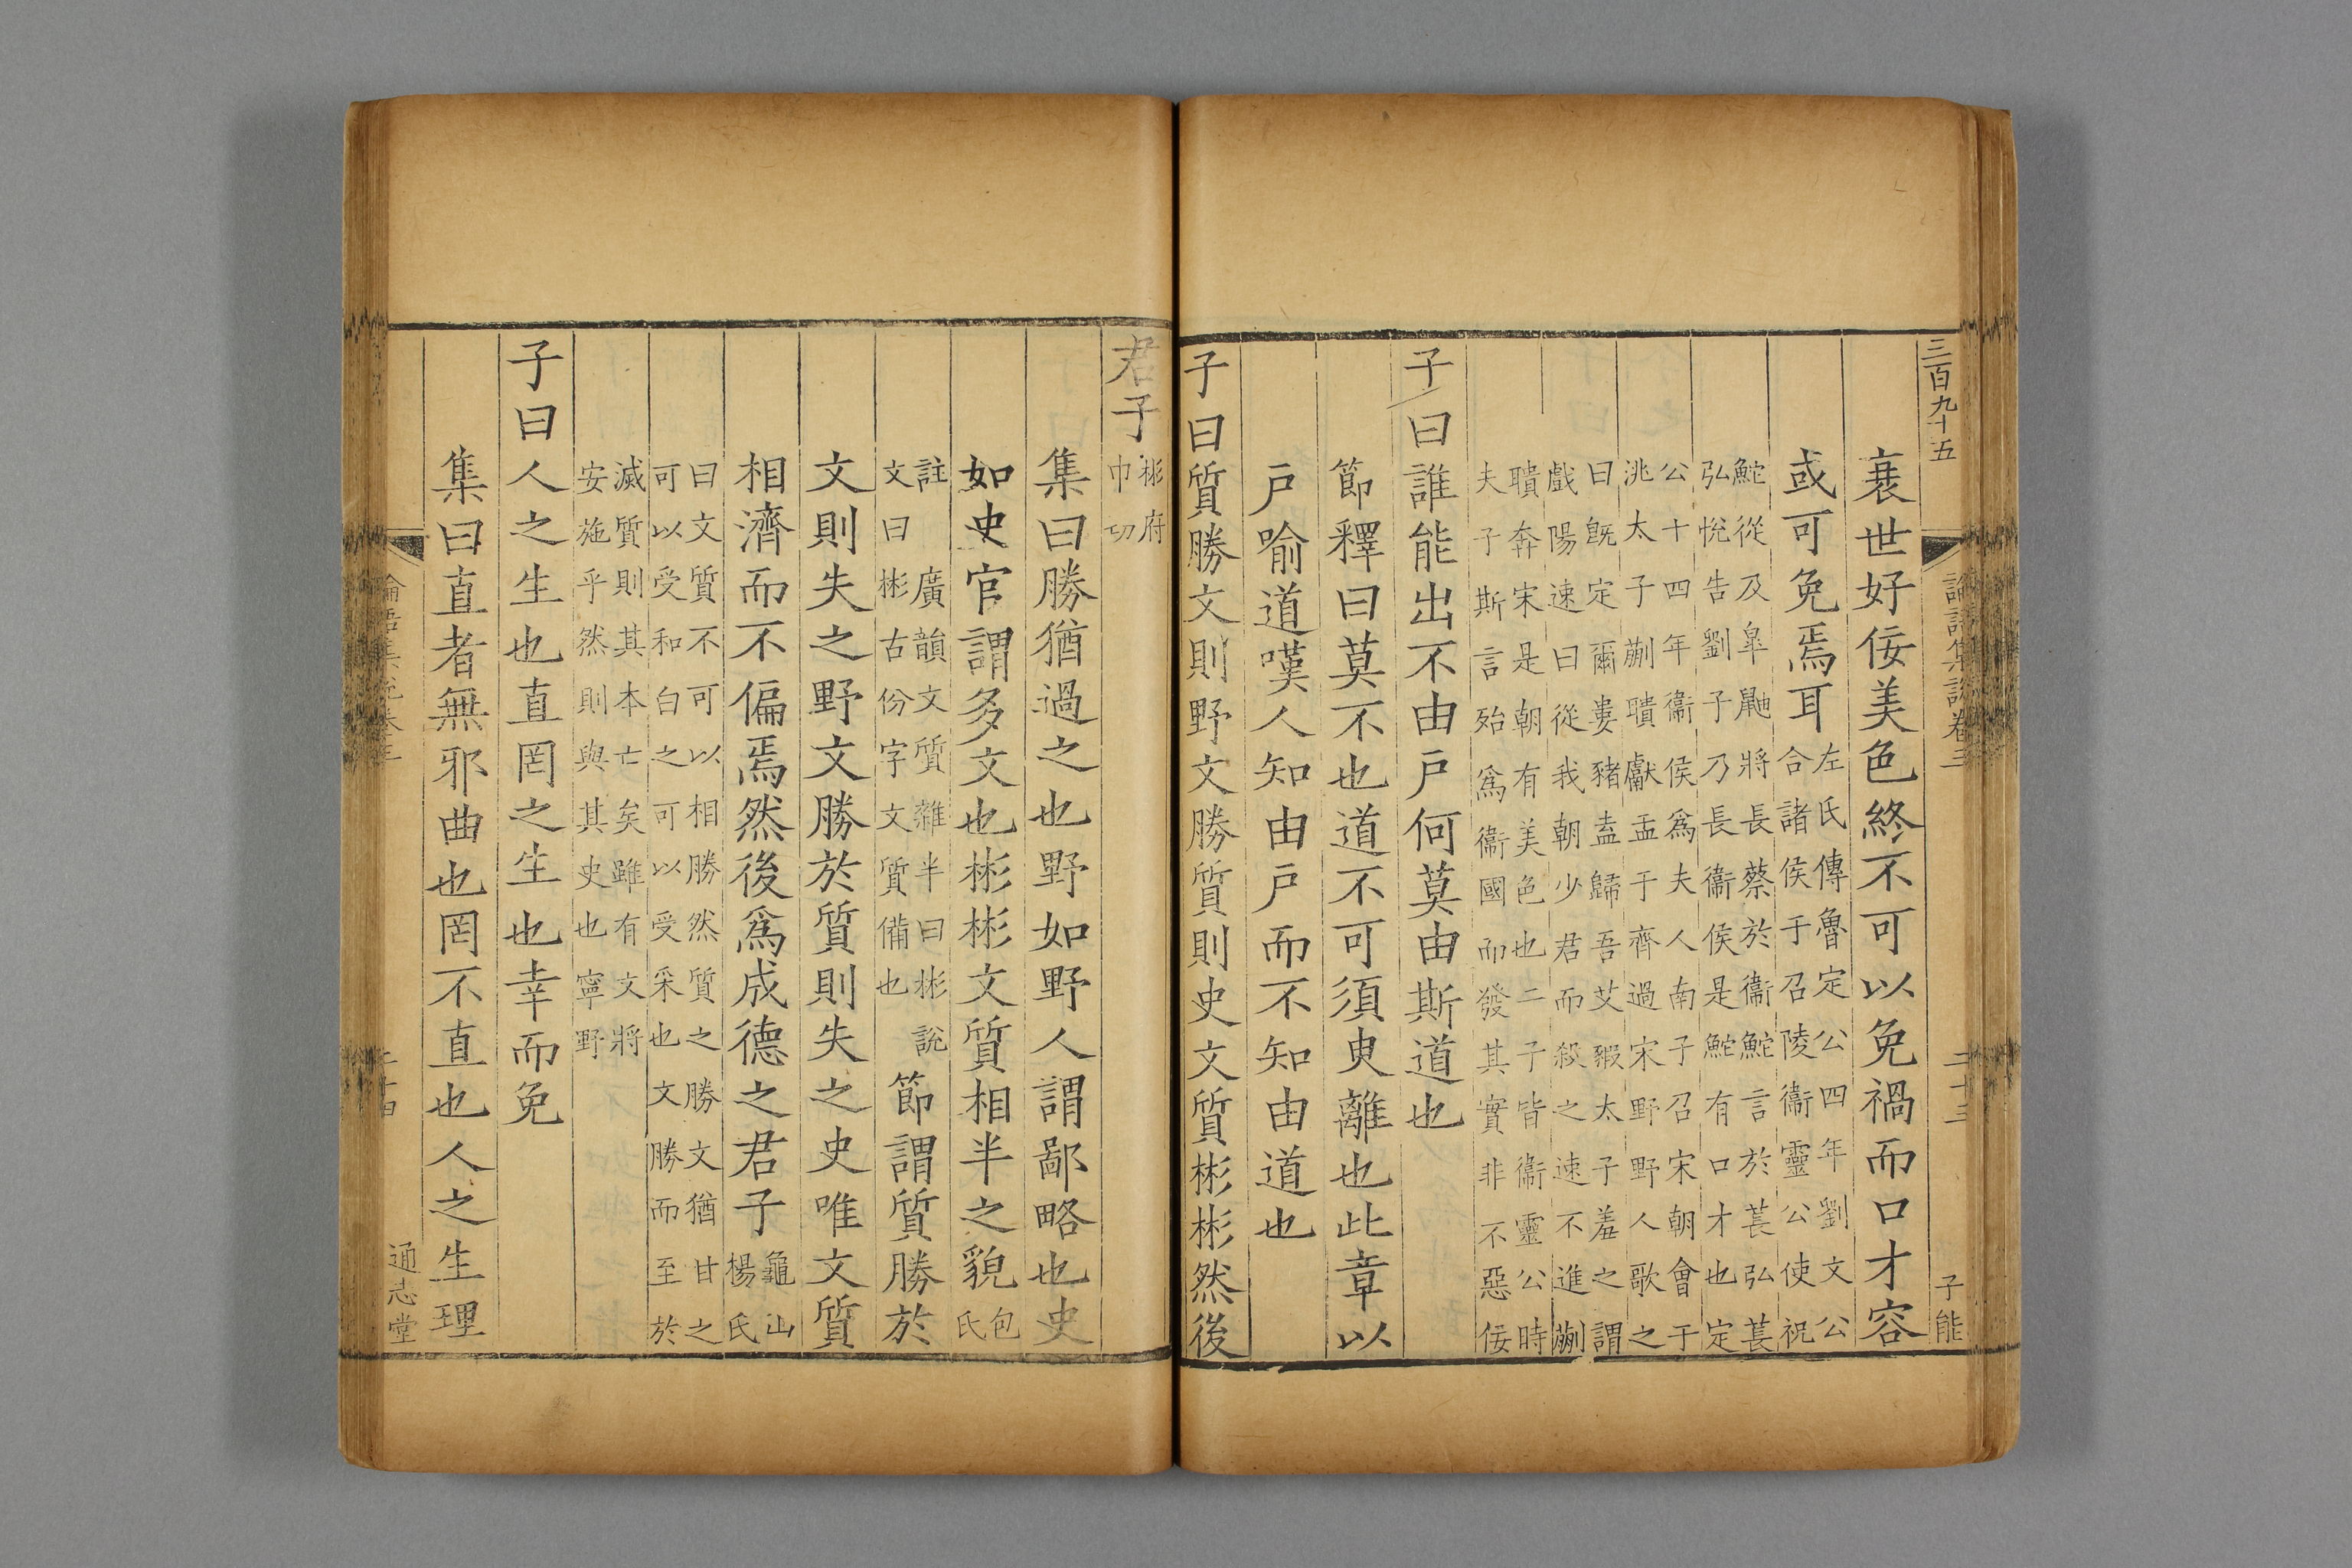 三百九十五
論語集說卷三
二十三
子能
衰世好佞美色終不可以免禍而口才容
或可免焉耳
左氏傳魯定公四年劉文公
合諸侯于召陵衞靈公使祝
鮀從及臯鼬將長蔡於衞鮀言於萇弘萇
弘悅告劉子乃長衞侯是鮀有口才也定
公十四年衞侯爲夫人南子召宋朝會于
洮太子蒯聵獻盂于齊過宋野野人歌之
曰旣定爾婁豬盍歸吾艾豭太子羞之謂
戲陽速曰從我朝少君而殺之速不進蒯
聵奔宋是朝有美色也二子皆衞靈公時
夫子斯言殆爲衞國而發其實非不惡佞
子曰誰能出不由戸何莫由斯道也
節釋曰莫不也道不可須臾離也此章以
戸喻道嘆人知由戸而不知由道也
子曰質勝文則野文勝質則史文質彬彬然後
君子
彬府
巾切
集曰勝猶過之也野如野人謂鄙略也史
如史官謂多文也彬彬文質相半之貌
包
氏
註廣韻文質雜半曰彬說
文曰彬古份字文質備也
節謂質勝於
文則失之野文勝於質則失之史唯文質
相濟而不偏焉然後爲成德之君子
龜山
楊氏
曰文質不可以相勝然質之勝文猶甘之
可以受和白之可以受采也文勝而至於
滅質則其本亡矣雖有文將
安施乎然則與其史也寧野
子曰人之生也直罔之生也幸而免
集曰直者無邪曲也罔不直也人之生理
論語集說卷三
二十四
通志堂